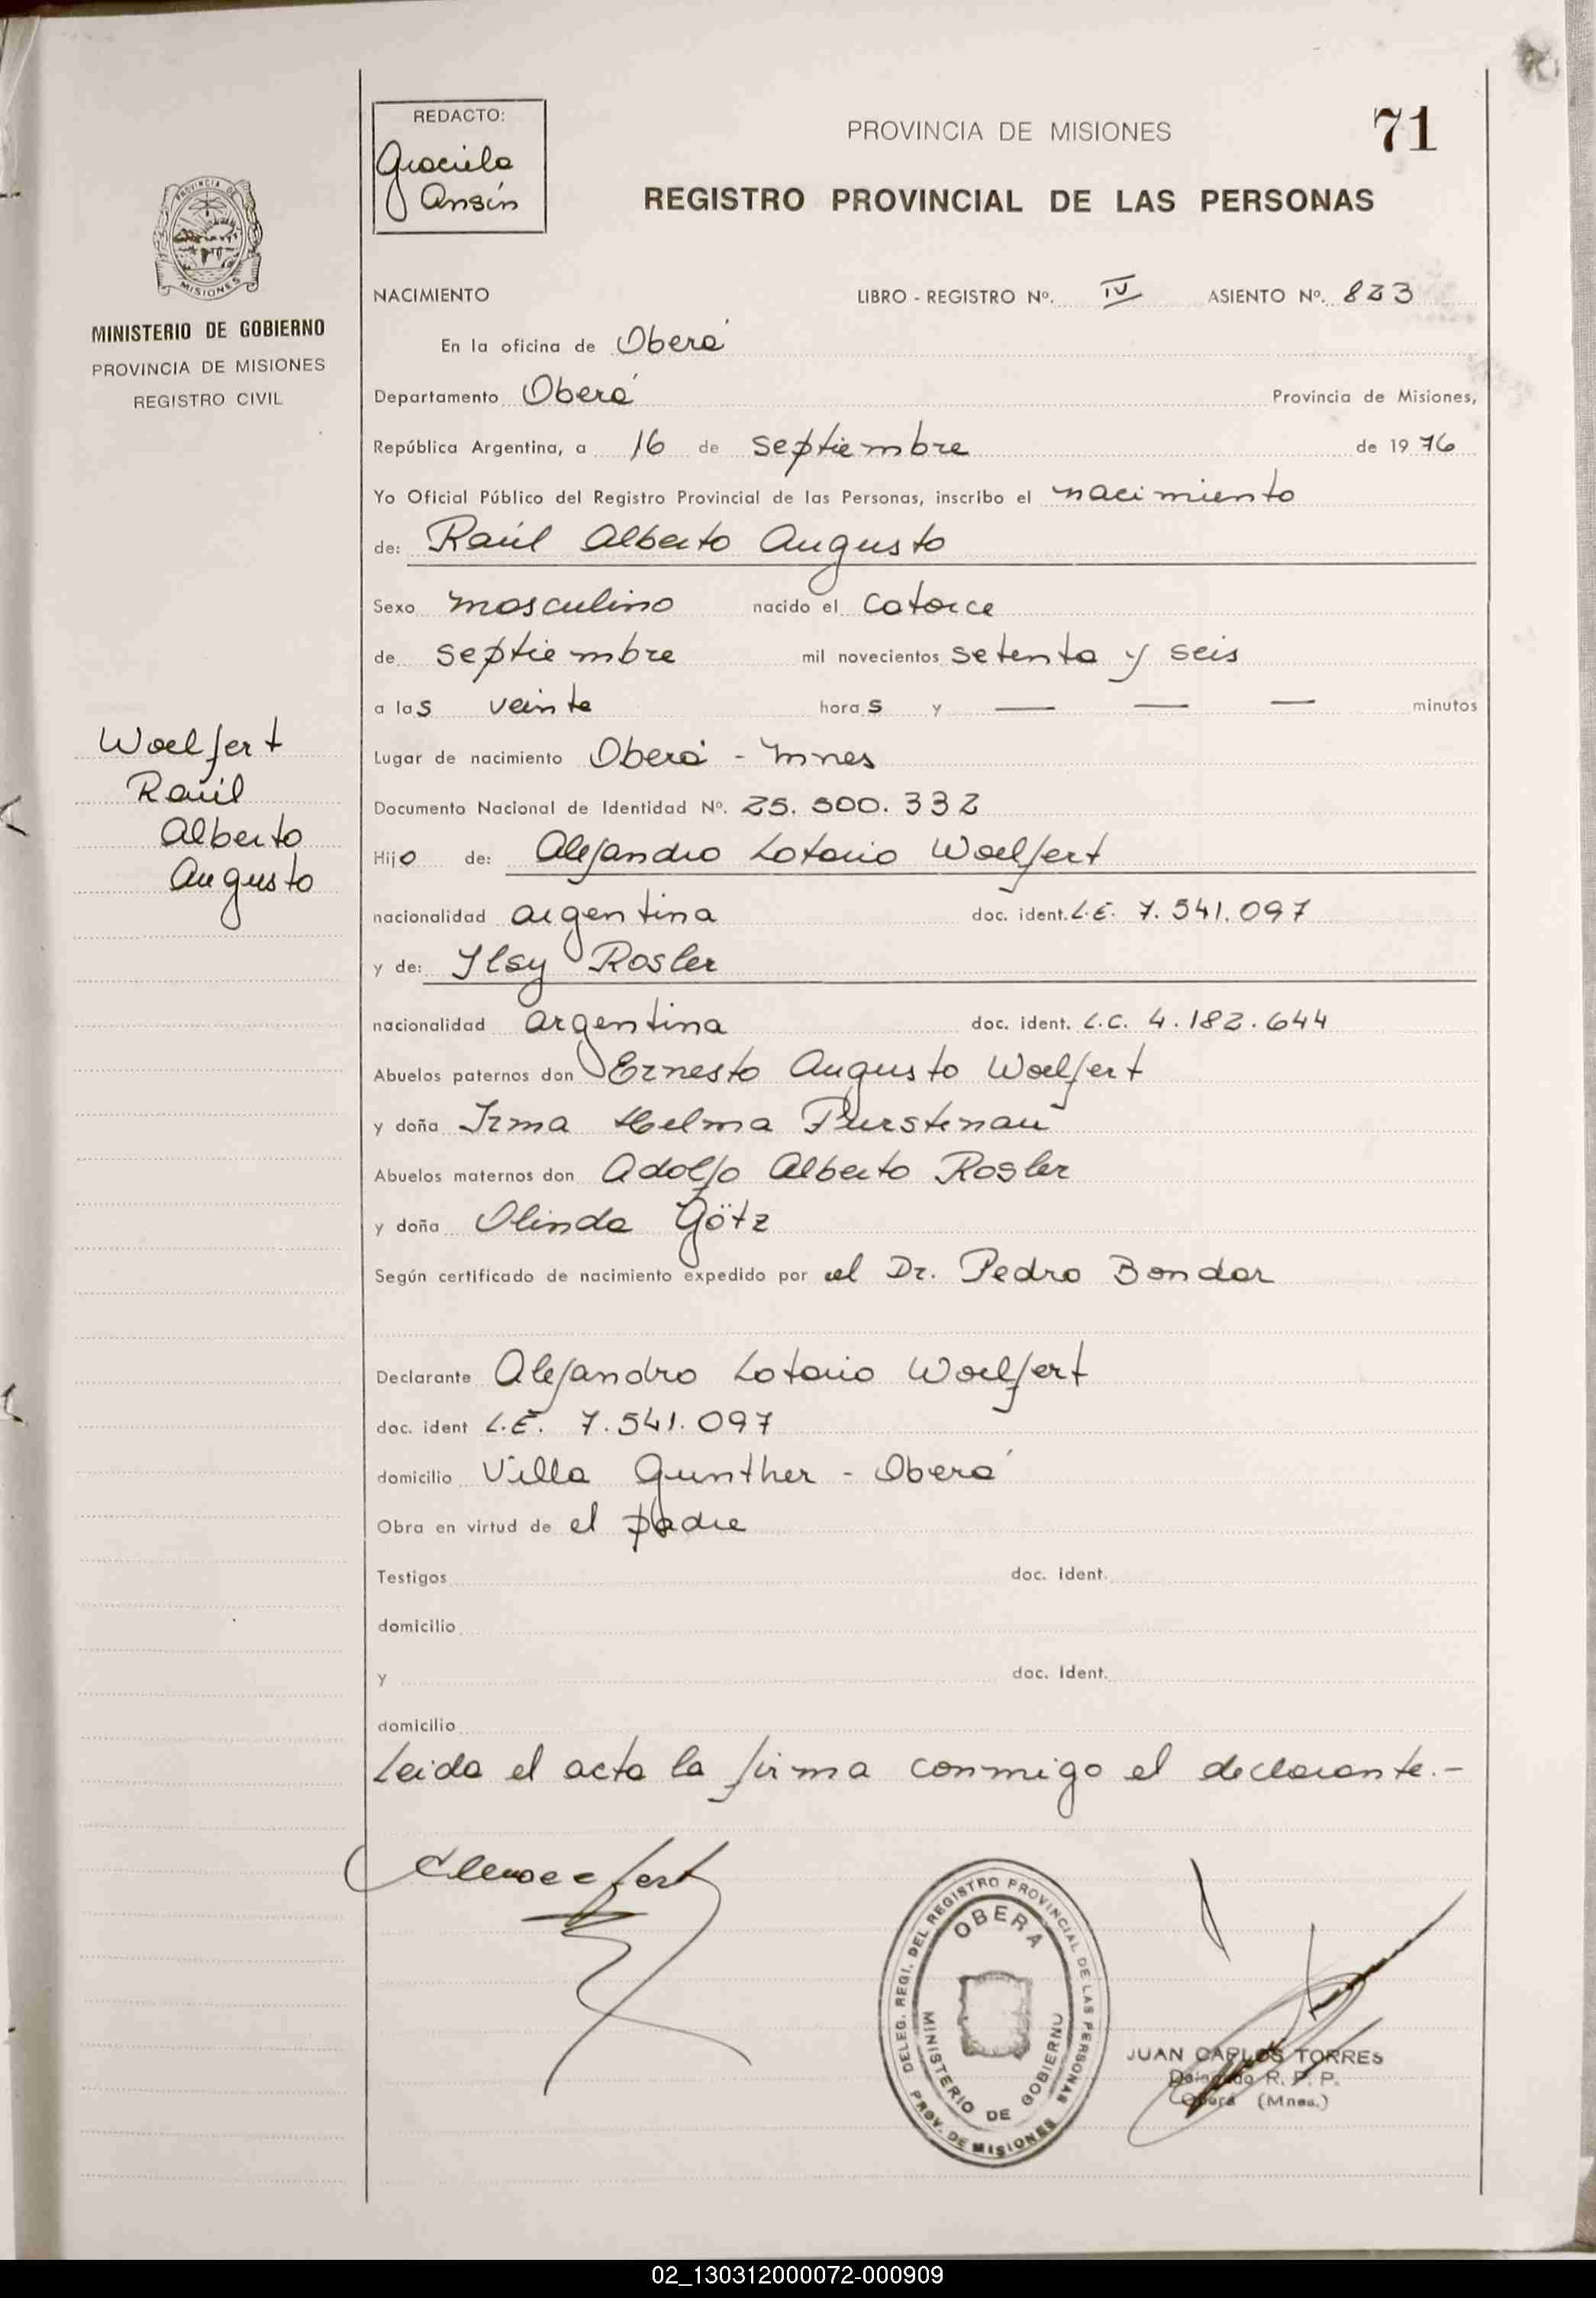 REDACTO:
Graciela
Ansín
PROVINCIA DE MISIONES
71
REGISTRO PROVINCIAL DE LAS PERSONAS
PROVINCIA DE
MISIONES
MINISTERIO DE GOBIERNO
PROVINCIA DE MISIONES
REGISTRO CIVIL
NACIMIENTO LIBRO - REGISTRO Nº. IV ASIENTO Nº. 823
En la oficina de Oberá
Departamento Oberá Provincia de Misiones,
República Argentina, a 16 de septiembre de 1976
Yo Oficial Público del Registro Provincial de las Personas, inscribo el nacimiento
de: Raúl Alberto Augusto
Sexo masculino nacido el catorce
de septiembre mil novecientos setenta y seis
a las veinte horas y — — — minutos
Woelfert
Raúl
Alberto
Augusto
Lugar de nacimiento Oberá - Mnes
Documento Nacional de Identidad Nº. 25.500.332
Hijo de: Alejandro Lotario Woelfert
nacionalidad argentina doc. ident. L.E. 7.541.097
y de: Ilsy Rosler
nacionalidad argentina doc. ident. L.C. 4.182.644
Abuelos paternos don Ernesto Augusto Woelfert
y doña Irma Helma Furstenau
Abuelos maternos don Adolfo Alberto Rosler
y doña Olinda Götz
Según certificado de nacimiento expedido por el Dr. Pedro Bondar
Declarante Alejandro Lotario Woelfert
doc. ident L.E. 7.541.097
domicilio Villa Gunther - Oberá
Obra en virtud de el padre
Testigos doc. ident.
domicilio
y doc. ident.
domicilio
Leida el acta la firma conmigo el declarante.-
DELEG. REGI. DEL REGISTRO PROVINCIAL DE LAS PERSONAS
OBERA
MINISTERIO DE GOBIERNO
PROV. DE MISIONES
JUAN CARLOS TORRES
Delegado R. P. P.
Oberá (Mnes.)
02_130312000072-000909